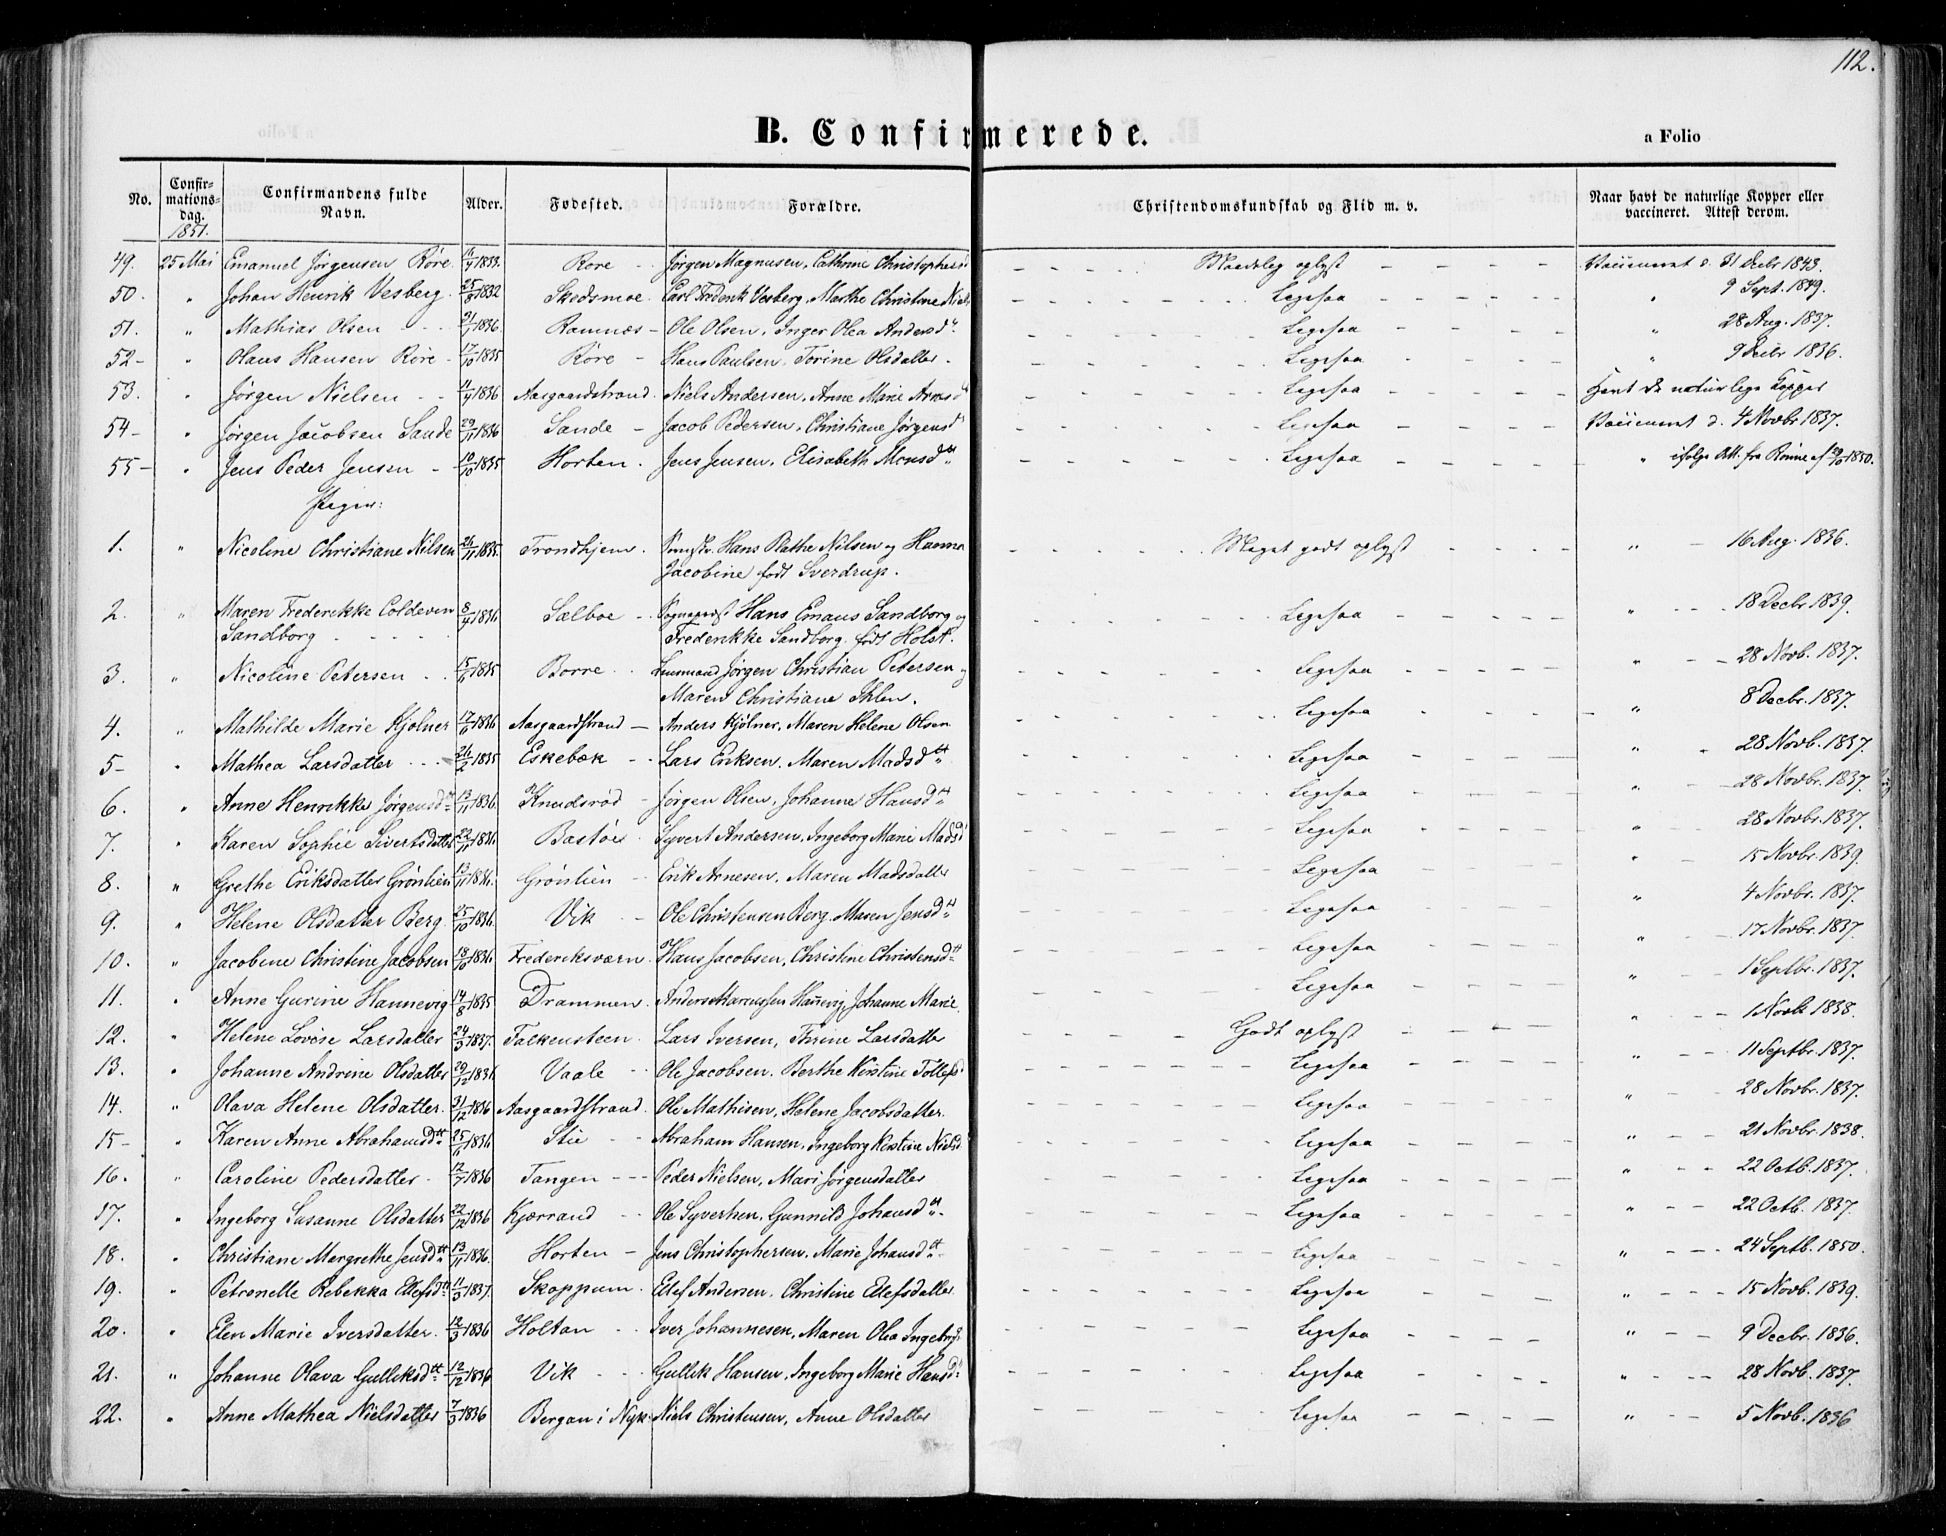 112.
B. Confirmerede.
a Folio
No. Confirmationsdag. 1851. Confirmandens fulde Navn. Alder. Fødested. Forældre. Christendomskundskab og Flid m. v. Naar havt de naturlige Kopper eller vaccineret. Attest derom.
49. 25 Mai Emanuel Jørgensen Røre 1833. Røre - Jørgen Magnusen, Cathrine Maadelig oplyst Vaccineret d. 31 Decbr 1843.
50. " Johan Henrik Vesberg. 1832 Skedsmoe. Carl Frederik Vesberg, Marthe Christine Niels Ligesaa " 9 Sept. 1849.
51. " Mathias Olsen 1836. Ramnæs - Ole Olsen, Inger Olea Andersd Ligesaa " 28 Aug. 1837.
52- " Olaus Hansen Røre - 17/10 1835 Røre - Hans Paulsen, Torine Olsdatter. Ligesaa " 9 Decbr 1836.
53. " Jørgen Nielsen 11/4 1836 Aasgaardstrand. Niels Andersen, Anne Marie Ligesaa Havt de naturlige Kopper
54- " Jørgen Jacobsen Sande 29/11 1836 Sande - Jacob Pedersen, Christiane Jørgensd Ligesaa Vaccineret d. 4 Novbr 1837.
55- " Jens Peder Jensen - 10/10 1835 Horten. Jens Jensen, Elisabeth Monsdtt Ligesaa " ifølge Att. fra Rønne af 29/10 1850.
Piger:
1. " Nicoline Christiane Nilsen 26/11 1835. Trondhjem. Hans Plathe Nilsen og Hanna Meget godt oplyst " - 16 Aug. 1836.
Jacobine født Sverdrup.
2. " Maren Frederikke Coldevin 8/4 1836 Sælboe - Sogneprest Hans Emaus Sandborg og Ligesaa " 18 Decbr 1839.
Sandborg Frederikke Sandborg født Holst.
3. " Nicoline Petersen 1835 Borre Lensmand Jørgen Christian Petersen og Ligesaa " 28 Novb. 1837.
Maren Christiane Ihlen.
4. " Mathilde Marie Kjølner 1836 Aasgaardstrand - Anders Kjølner, Maren Helene Olsen Ligesaa " 8 Decbr. 1837.
5- " Mathea Larsdatter 26/2 1835 Eskebæk Lars Eriksen, Maren Madsdtt Ligesaa " 28 Novb. 1837.
6. " Anne Henrikke Jørgensdtt 13/11 1836. Knudsrød - Jørgen Olsen, Johanne Hansdtt Ligesaa " 28 Novbr. 1837.
7. " Karen Sophie Sivertsdatter 22/11 1836. Bastøe Syvert Andersen, Ingeborg Marie Madsd Ligesaa " 28 Novbr. 1837.
8. " Grethe Eriksdatter Grønlien 13/11 1836. Grønlien Erik Arnesen, Maren Madsdatter Ligesaa " 15 Novbr. 1839.
9. " Helene Olsdatter Berg 25/10 1836. Vik - Ole Christensen Berg, Maren Jensdtt Ligesaa " 4 Novbr. 1837.
10. " Jacobine Christine Jacobsen 1836. Frederiksværn. Hans Jacobsen, Christine Christensdtt Ligesaa " 17 Novbr. 1837.
11. " Anne Gurine Hannevig 14/8 1835 Drammen. Anders Marcussen Hannevig, Johanne Marie Ligesaa " 1 Septbr. 1837.
12. " Helene Lovise Larsdatter 24/3 1837. Falkensteen. Lars Iversen, Thrine Larsdatter Godt oplyst " 1 Novb 1838.
13. " Johanne Andrine Olsdatter 29/12 1836 Vaale Ole Jacobsen, Berthe Kirstine Tollefsd Ligesaa " 11 Septbr. 1837.
14. " Olava Helene Olsdatter. 31/12 1836 Aasgaardstrand. Ole Mathisen, Helene Jacobsdatter. Ligesaa " 28 Novbr. 1837.
15- " Karen Anne Abrahamsdtt 1836 Stie Abraham Hansen, Ingeborg Kirstine Nielsd Ligesaa " 21 Novbr. 1838.
16. " Caroline Pedersdatter. 12/7 1836 Tangen Peder Nielsen, Mari Jørgensdatter Ligesaa " 22 Octb. 1837.
17. " Ingeborg Susanne Olsdatter 22/12 1836 Kjærrand Ole Syvertsen, Gunnild Johansdtt. Ligesaa " 22 Octb. 1837.
18. " Christiane Margrethe Jensdtt 13/11 1836. Horten - Jens Christophersen, Marie Johansdtt Ligesaa " 24 Septb. 1850.
19. " Petronelle Rebekka Ellefsdtt 11/3 1837. Skoppum. Ellef Andersen, Christine Ellefsdatter Ligesaa " 15 Novb. 1839.
20. " Elen Marie Iversdatter. 12/3 1836 Holtan Iver Johannesen, Maren Olea Ligesaa " 9 Decbr. 1836.
21. " Johanne Olava Gulliksdtt 12/12 1836 Vik Gullik Hansen, Ingeborg Marie Hansdtt Ligesaa " 28 Novb. 1837.
22. " Anne Mathea Nielsdatter 7/3 1836 Bergan i Nyk. Niels Christensen, Anne Olsdatter Ligesaa " 5 Novb. 1836